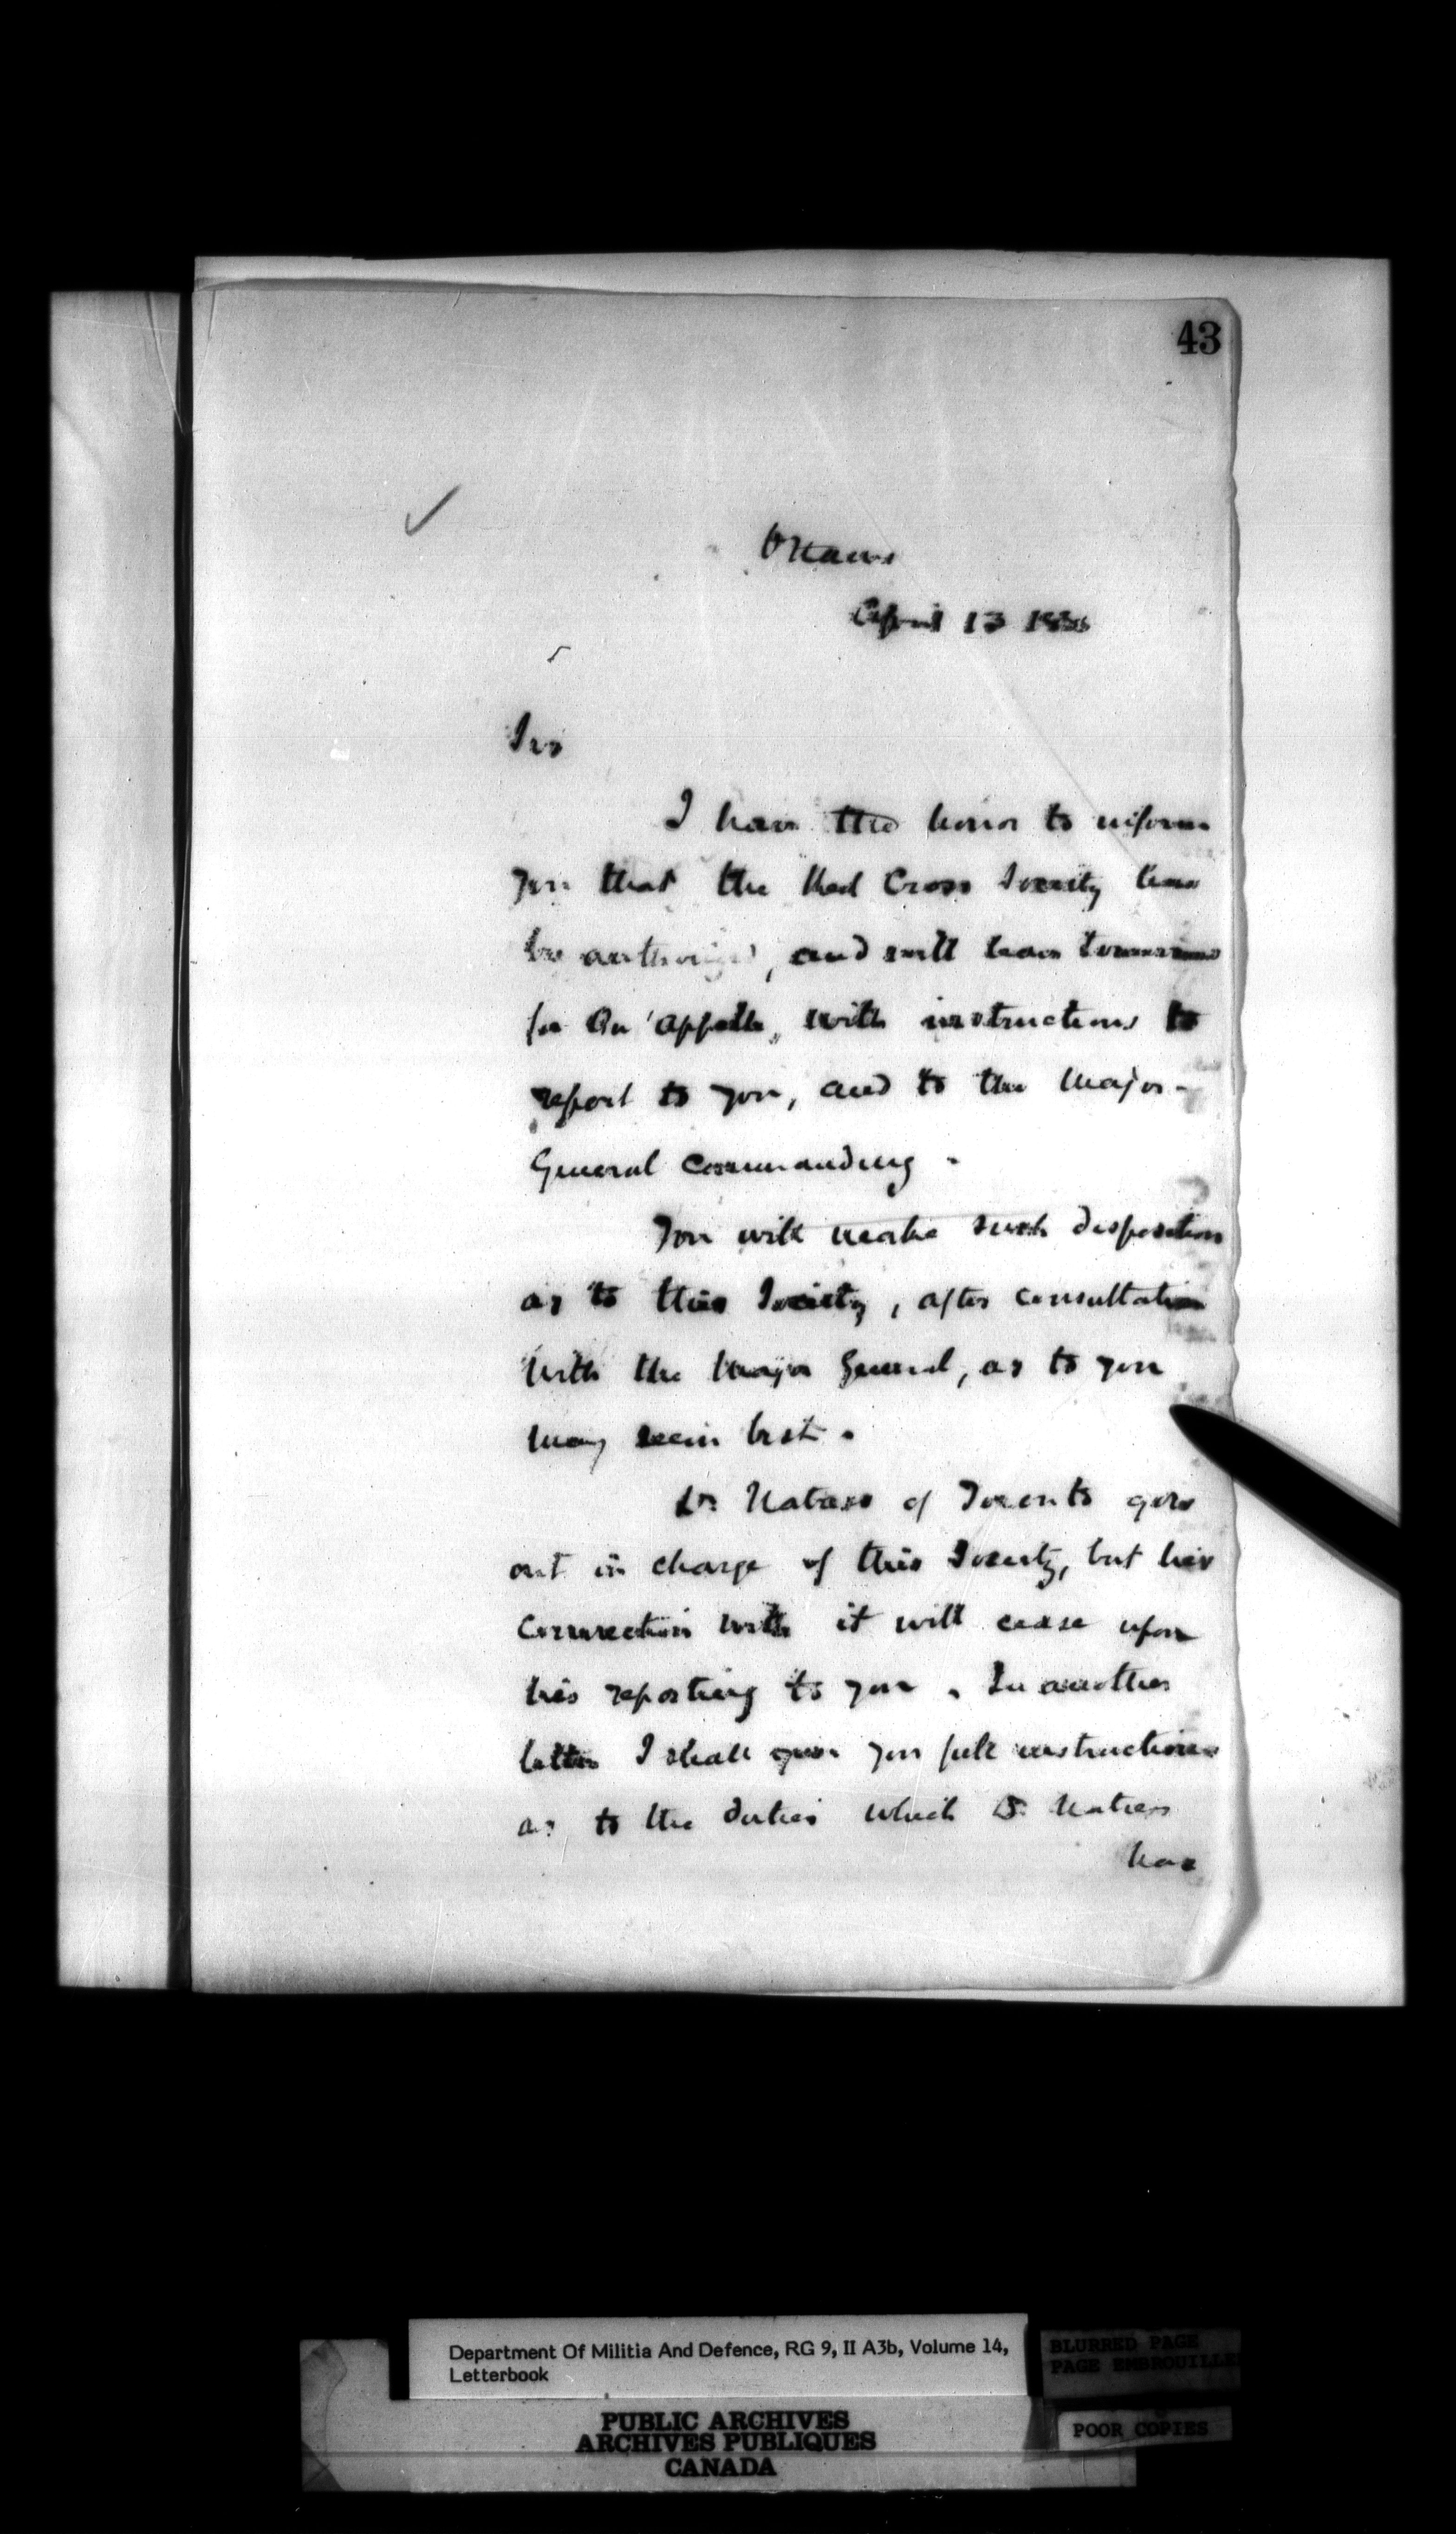 43
Ottawa
April 13 188
Sir
I have the honor to inform
you that the Red Cross Society has
be authorized, and will leave
for Qu'Appelle, with instructions to
report to you, and to the Major-
General Commanding.
You will make such disposition
as to this Society, after consultation
with the Major General, as to you
may seem best.
Dr. Nattress of Toronto goes
out in charge of this Society, but his
connection with it will cease upon
his reporting to you. In another
letter I shall give you full instructions
as to the duties which Dr. Nattress
has
Department Of Militia And Defence, RG 9, II A3b, Volume 14,
Letterbook
BLURRED PAGE
PAGE EMBROUILLEE
POOR COPIES
PUBLIC ARCHIVES
ARCHIVES PUBLIQUES
CANADA